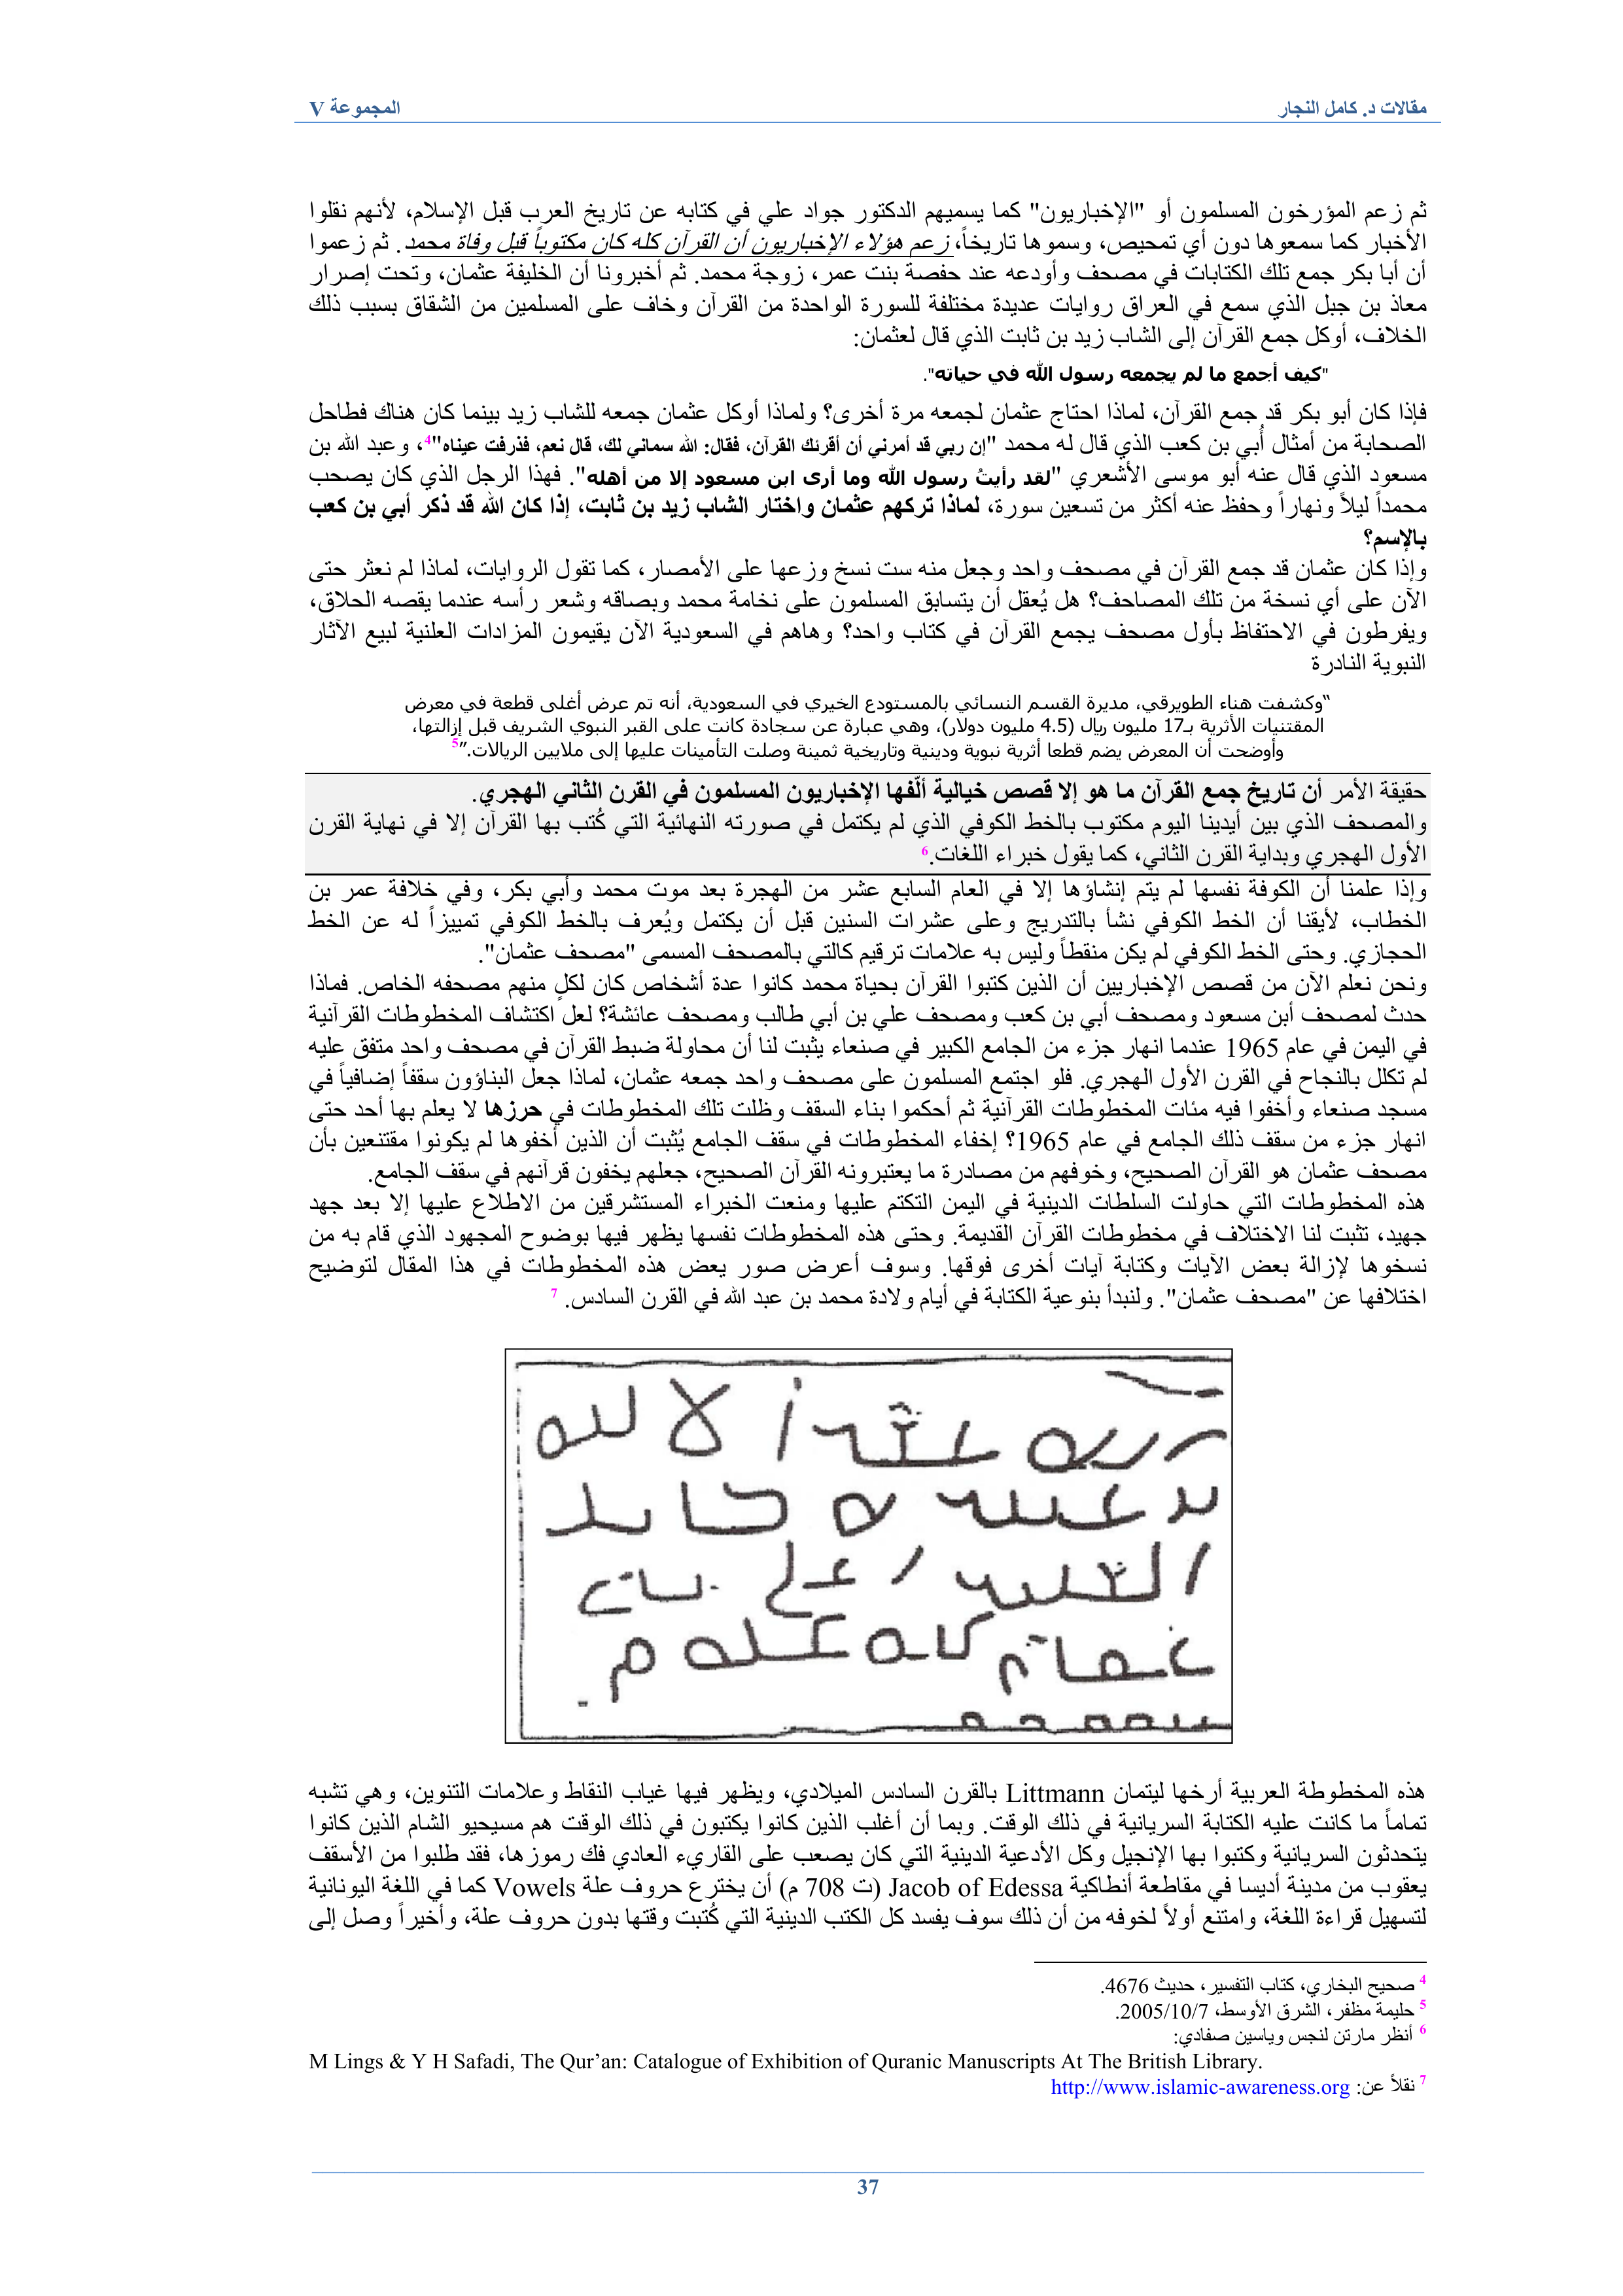 مقالات د. كامل النجار
المجموعة V
ثم زعم المؤرخون المسلمون أو "الإخباريون" كما يسميهم الدكتور جواد علي في كتابه عن تاريخ العرب قبل الإسلام، لأنهم نقلوا
الأخبار كما سمعوها دون أي تمحيص، وسموها تاريخاً، زعم هؤلاء الإخباريون أن القرآن كله كان مكتوباً قبل وفاة محمد. ثم زعموا
أن أبا بكر جمع تلك الكتابات في مصحف وأودعه عند حفصة بنت عمر، زوجة محمد. ثم أخبرونا أن الخليفة عثمان، وتحت إصرار
معاذ بن جبل الذي سمع في العراق روايات عديدة مختلفة للسورة الواحدة من القرآن وخاف على المسلمين من الشقاق بسبب ذلك
الخلاف، أوكل جمع القرآن إلى الشاب زيد بن ثابت الذي قال لعثمان:
"كيف أجمع ما لم يجمعه رسول الله في حياته".
فإذا كان أبو بكر قد جمع القرآن، لماذا احتاج عثمان لجمعه مرة أخرى؟ ولماذا أوكل عثمان جمعه للشاب زيد بينما كان هناك فطاحل
الصحابة من أمثال أُبي بن كعب الذي قال له محمد "إن ربي قد أمرني أن أقرئك القرآن، فقال: الله سماني لك، قال نعم، فذرفت عيناه"4، وعبد الله بن
مسعود الذي قال عنه أبو موسى الأشعري "لقد رأيتُ رسول الله وما أرى ابن مسعود إلا من أهله". فهذا الرجل الذي كان يصحب
محمداً ليلاً ونهاراً وحفظ عنه أكثر من تسعين سورة، لماذا تركهم عثمان واختار الشاب زيد بن ثابت، إذا كان الله قد ذكر أبي بن كعب
بالإسم؟
وإذا كان عثمان قد جمع القرآن في مصحف واحد وجعل منه ست نسخ وزعها على الأمصار، كما تقول الروايات، لماذا لم نعثر حتى
الآن على أي نسخة من تلك المصاحف؟ هل يُعقل أن يتسابق المسلمون على نخامة محمد وبصاقه وشعر رأسه عندما يقصه الحلاق،
ويفرطون في الاحتفاظ بأول مصحف يجمع القرآن في كتاب واحد؟ وهاهم في السعودية الآن يقيمون المزادات العلنية لبيع الآثار
النبوية النادرة
"وكشفت هناء الطويرقي، مديرة القسم النسائي بالمستودع الخيري في السعودية، أنه تم عرض أغلى قطعة في معرض
المقتنيات الأثرية بـ17 مليون ريال (4.5 مليون دولار)، وهي عبارة عن سجادة كانت على القبر النبوي الشريف قبل إزالتها،
وأوضحت أن المعرض يضم قطعا أثرية نبوية ودينية وتاريخية ثمينة وصلت التأمينات عليها إلى ملايين الريالات."5
حقيقة الأمر أن تاريخ جمع القرآن ما هو إلا قصص خيالية ألّفها الإخباريون المسلمون في القرن الثاني الهجري.
والمصحف الذي بين أيدينا اليوم مكتوب بالخط الكوفي الذي لم يكتمل في صورته النهائية التي كُتب بها القرآن إلا في نهاية القرن
الأول الهجري وبداية القرن الثاني، كما يقول خبراء اللغات.6
وإذا علمنا أن الكوفة نفسها لم يتم إنشاؤها إلا في العام السابع عشر من الهجرة بعد موت محمد وأبي بكر، وفي خلافة عمر بن
الخطاب، لأيقنا أن الخط الكوفي نشأ بالتدريج وعلى عشرات السنين قبل أن يكتمل ويُعرف بالخط الكوفي تمييزاً له عن الخط
الحجازي. وحتى الخط الكوفي لم يكن منقطاً وليس به علامات ترقيم كالتي بالمصحف المسمى "مصحف عثمان".
ونحن نعلم الآن من قصص الإخباريين أن الذين كتبوا القرآن بحياة محمد كانوا عدة أشخاص كان لكلٍ منهم مصحفه الخاص. فماذا
حدث لمصحف أبن مسعود ومصحف أبي بن كعب ومصحف علي بن أبي طالب ومصحف عائشة؟ لعل اكتشاف المخطوطات القرآنية
في اليمن في عام 1965 عندما انهار جزء من الجامع الكبير في صنعاء يثبت لنا أن محاولة ضبط القرآن في مصحف واحد متفق عليه
لم تكلل بالنجاح في القرن الأول الهجري. فلو اجتمع المسلمون على مصحف واحد جمعه عثمان، لماذا جعل البناؤون سقفاً إضافياً في
مسجد صنعاء وأخفوا فيه مئات المخطوطات القرآنية ثم أحكموا بناء السقف وظلت تلك المخطوطات في حرزها لا يعلم بها أحد حتى
انهار جزء من سقف ذلك الجامع في عام 1965؟ إخفاء المخطوطات في سقف الجامع يُثبت أن الذين أخفوها لم يكونوا مقتنعين بأن
مصحف عثمان هو القرآن الصحيح، وخوفهم من مصادرة ما يعتبرونه القرآن الصحيح، جعلهم يخفون قرآنهم في سقف الجامع.
هذه المخطوطات التي حاولت السلطات الدينية في اليمن التكتم عليها ومنعت الخبراء المستشرقين من الاطلاع عليها إلا بعد جهد
جهيد، تثبت لنا الاختلاف في مخطوطات القرآن القديمة. وحتى هذه المخطوطات نفسها يظهر فيها بوضوح المجهود الذي قام به من
نسخوها لإزالة بعض الآيات وكتابة آيات أخرى فوقها. وسوف أعرض صور بعض هذه المخطوطات في هذا المقال لتوضيح
اختلافها عن "مصحف عثمان". ولنبدأ بنوعية الكتابة في أيام ولادة محمد بن عبد الله في القرن السادس. 7
هذه المخطوطة العربية أرخها ليتمان Littmann بالقرن السادس الميلادي، ويظهر فيها غياب النقاط وعلامات التنوين، وهي تشبه
تماماً ما كانت عليه الكتابة السريانية في ذلك الوقت. وبما أن أغلب الذين كانوا يكتبون في ذلك الوقت هم مسيحيو الشام الذين كانوا
يتحدثون السريانية وكتبوا بها الإنجيل وكل الأدعية الدينية التي كان يصعب على القاريء العادي فك رموزها، فقد طلبوا من الأسقف
يعقوب من مدينة أديسا في مقاطعة أنطاكية Jacob of Edessa (ت 708 م) أن يخترع حروف علة Vowels كما في اللغة اليونانية
لتسهيل قراءة اللغة، وامتنع أولاً لخوفه من أن ذلك سوف يفسد كل الكتب الدينية التي كُتبت وقتها بدون حروف علة، وأخيراً وصل إلى
4 صحيح البخاري، كتاب التفسير، حديث 4676.
5 حليمة مظفر، الشرق الأوسط، 2005/10/7.
6 أنظر مارتن لنجس وياسين صفادي:
M Lings & Y H Safadi, The Qur’an: Catalogue of Exhibition of Quranic Manuscripts At The British Library.
7 نقلاً عن: http://www.islamic-awareness.org
37